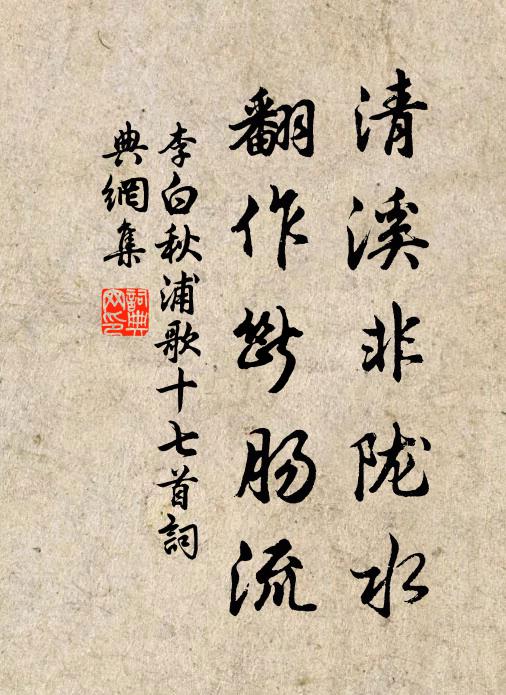 清溪非陇水
翻作断肠流
李白秋浦歌十七首詞
典網集
詞典
网印